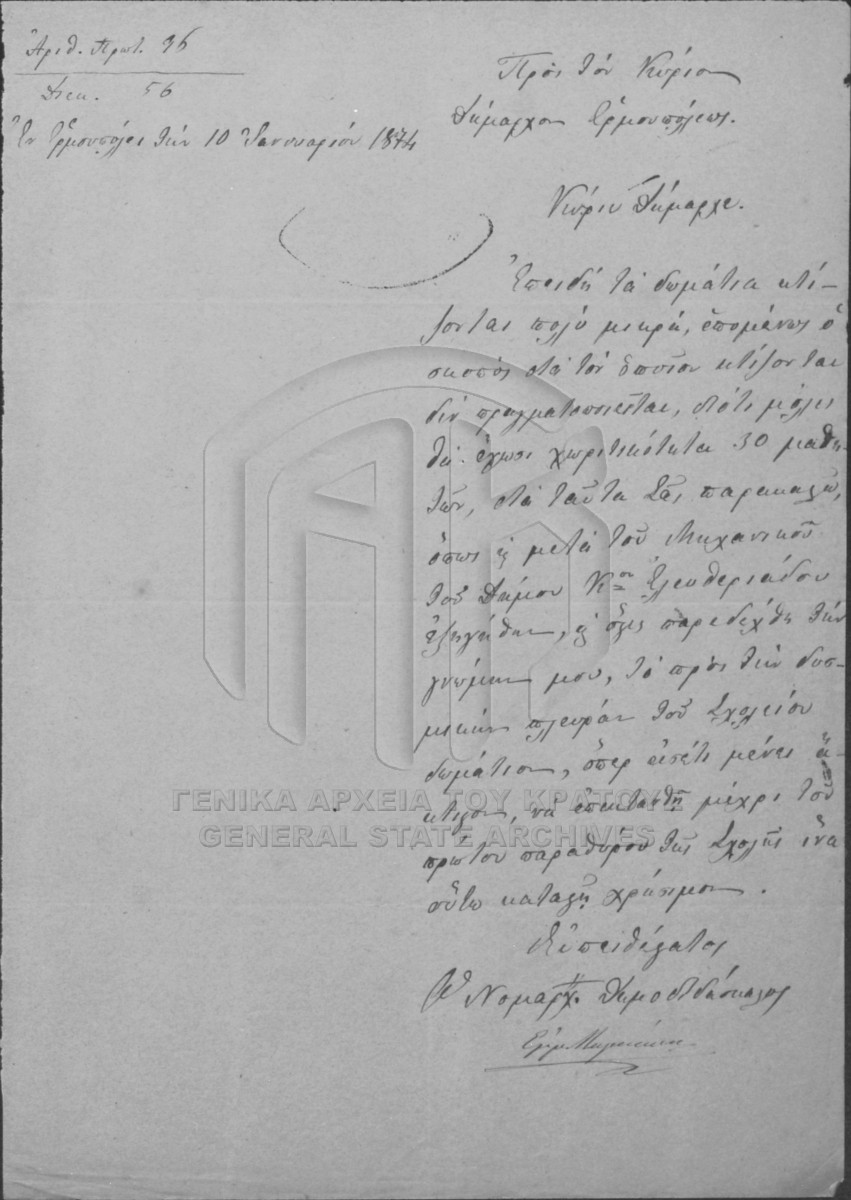 Ἀριθ. Πρωτ. 36
Διεκ. 56
Ἐν Ἑρμουπόλει τὴν 10 Ἰανουαρίου 1874
Πρὸς τὸν Κύριον
Δήμαρχον Ἑρμουπόλεως.
Κύριε Δήμαρχε.
Ἐπειδὴ τὰ δωμάτια κτί-
ζονται πολὺ μικρά, ἑπομένως ὁ
σκοπὸς διὰ τὸν ὁποῖον κτίζονται
δὲν πραγματοποιεῖται, διότι μόλις
θὰ ἔχωσι χωρητικότητα 30 μαθη-
τῶν, διὰ ταῦτα Σᾶς παρακαλῶ,
ὅπως ὡς μετὰ τοῦ Μηχανικοῦ
τοῦ Δήμου Κου Ἐλευθεριάδου
ἐξηγήθην, ὡς ὅστις παρεδέχθη τὴν
γνώμην μου, τὸ πρὸς τὴν δυσ-
μικὴν πλευρὰν τοῦ Σχολείου
δωμάτιον, ὅπερ εἰσέτι μένει ἄ-
κτιστον, νὰ ἐπεκτανθῇ μέχρι τοῦ
πρώτου παραθύρου τῆς Σχολῆς ἵνα
οὕτω καταστῇ χρήσιμον.
Εὐπειθέστατος
Ὁ Νομαρχ. Δημοδιδάσκαλος
ΓΕΝΙΚΑ ΑΡΧΕΙΑ ΤΟΥ ΚΡΑΤΟΥΣ
GENERAL STATE ARCHIVES